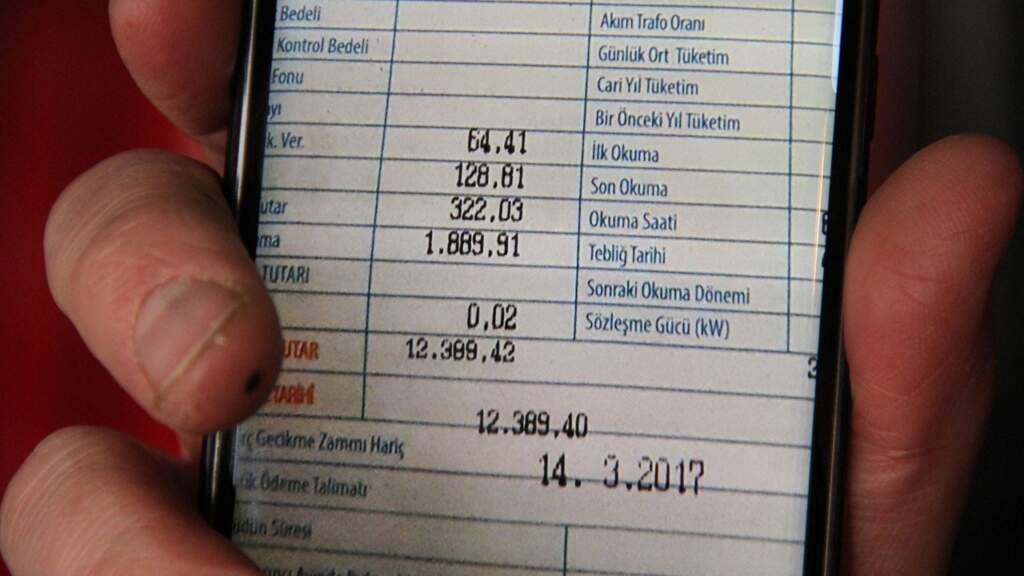 Bedeli Akım Trafo Oranı
Kontrol Bedeli Günlük Ort Tüketim
Fonu Cari Yıl Tüketim
Bir Önceki Yıl Tüketim
k. Ver. 64,41 İlk Okuma
128,81 Son Okuma
utar 322,03 Okuma Saati
ma 1.889,91 Tebliğ Tarihi
TUTARI Sonraki Okuma Dönemi
0,02 Sözleşme Gücü (kW)
UTAR 12.389,42
TARİHİ 12.389,40
Gecikme Zammı Hariç 14. 3.2017
Ödeme Talimatı
Süresi